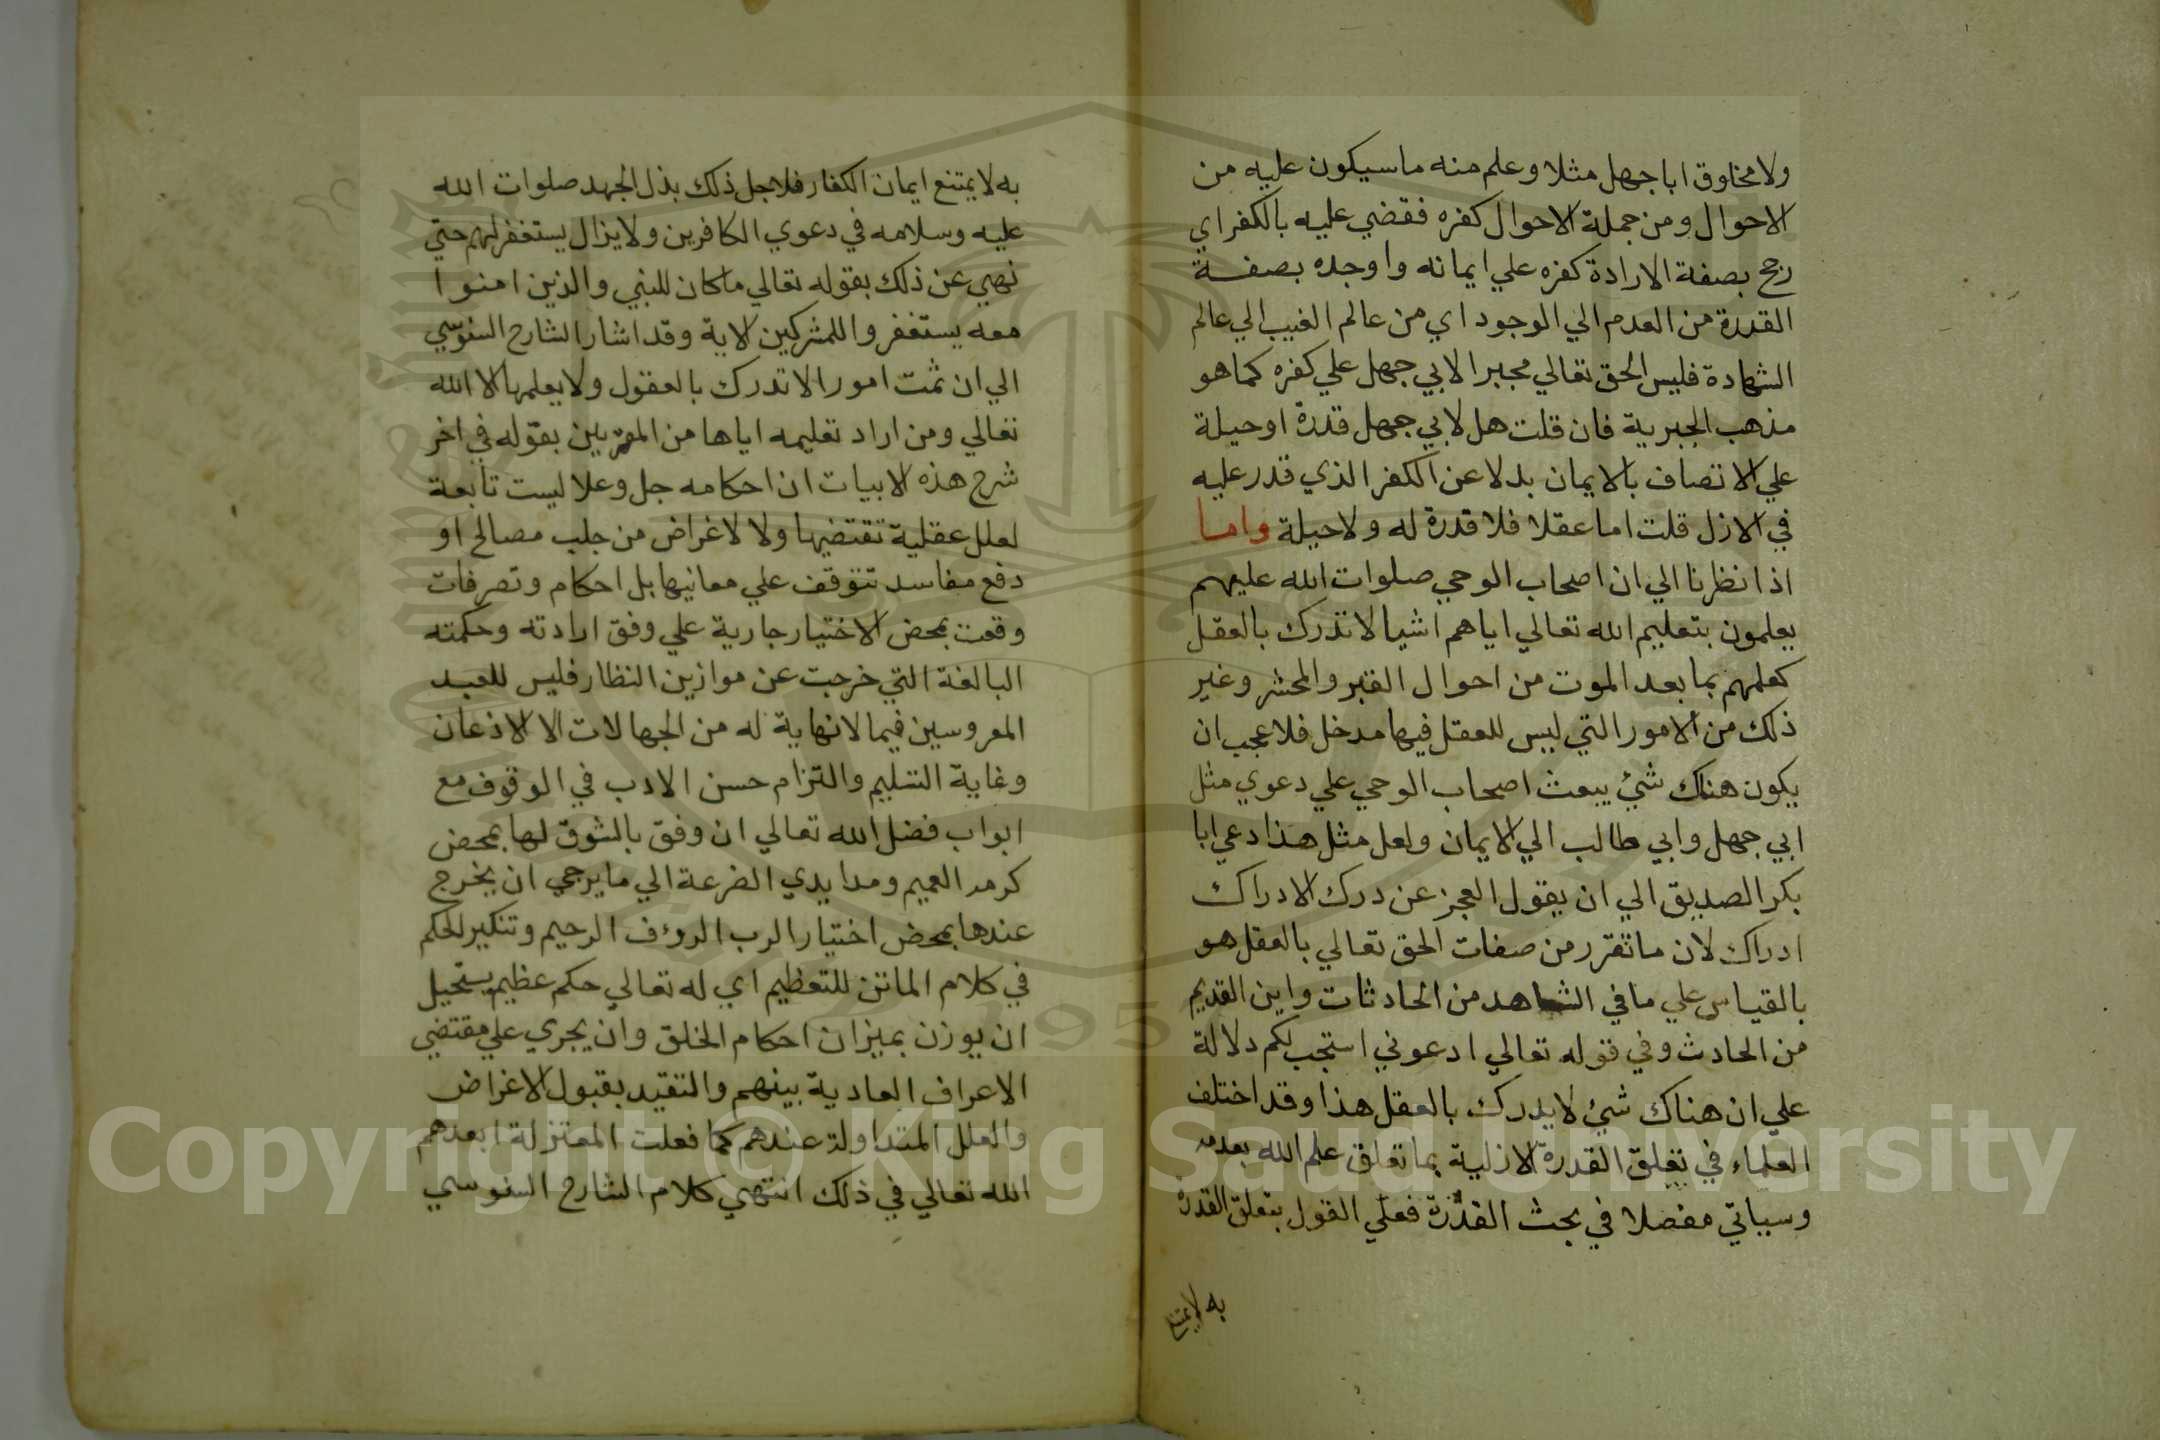 ولا مخلوق ابا جهل مثلا وعلم منه ما سيكون عليه من
الاحوال ومن جملة الاحوال كفره فقضي عليه بالكفر اي
رجح بصفة الارادة كفره علي ايمانه واوجده بصفة
القدرة من العدم الي الوجود اي من عالم الغيب الي عالم
الشهادة فليس الحق تعالي مجبرا لابي جهل علي كفره كما هو
مذهب الجبرية فان قلت هل لابي جهل قدرة او حيلة
علي الاتصاف بالايمان بدلا عن الكفر الذي قدر عليه
في الازل قلت اما عقلا فلا قدرة له ولا حيلة واما
اذا نظرنا الي ان اصحاب الوحي صلوات الله عليهم
يعلمون بتعليم الله تعالي اياهم اشيا لا تدرك بالعقل
كعلمهم بما بعد الموت من احوال القبر والمحشر وغير
ذلك من الامور التي ليس للعقل فيها مدخل فلا عجب ان
يكون هناك شئ يبعث اصحاب الوحي علي دعوي مثل
ابي جهل وابي طالب الي الايمان ولعل مثل هذا دعي ابا
بكر الصديق الي ان يقول العجز عن درك الادراك
ادراك لان ما تقرر من صفات الحق تعالي بالعقل هو
بالقياس علي ما في الشاهد من الحادثات واين القديم
من الحادث وفي قوله تعالي ادعوني استجب لكم دلالة
علي ان هناك شئ لا يدرك بالعقل هذا وقد اختلف
العلماء في تعلق القدرة الازلية بما تعلق علم الله بعدمه
وسياتي مفصلا في بحث القدرة فعلي القول بتعلق القدرة
به لا يمتنع
به لا يمتنع ايمان الكفار فلاجل ذلك بذل الجهد صلوات الله
عليه وسلامه في دعوي الكافرين ولا يزال يستغفر لهم حتي
نهي عن ذلك بقوله تعالي ما كان للنبي والذين امنوا
معه يستغفروا للمشركين الاية وقد اشار الشارح السنوسي
الي ان ثمت امورا لا تدرك بالعقول ولا يعلمها الا الله
تعالي ومن اراد تعليمه اياها من المقربين بقوله في اخر
شرح هذه الابيات ان احكامه جل وعلا ليست تابعة
لعلل عقلية تقتضيها ولا لاغراض من جلب مصالح او
دفع مفاسد تتوقف علي معانيها بل احكام وتصرفات
وقعت بمحض الاختيار جارية علي وفق ارادته وحكمته
البالغة التي خرجت عن موازين النظار فليس للعبد
المغروسين فيما لا نهاية له من الجهالات الا الاذعان
وغاية التسليم والتزام حسن الادب في الوقوف مع
ابواب فضل الله تعالي ان وفق بالشوق لها بمحض
كرمه العميم ومد ايدي الضرعة الي ما يرجي ان يخرج
عندها بمحض اختيار الرب الروءف الرحيم وتنكير الحكم
في كلام الماتن للتعظيم اي له تعالي حكم عظيم يستحيل
ان يوزن بميزان احكام الخلق وان يجري علي مقتضي
الاعراف العادية بينهم والتقيد بقبول الاغراض
والعلل المتداولة عندهم كما فعلت المعتزلة ابعدهم
الله تعالي في ذلك انتهي كلام الشارح السنوسي
Copyright © King Saud University